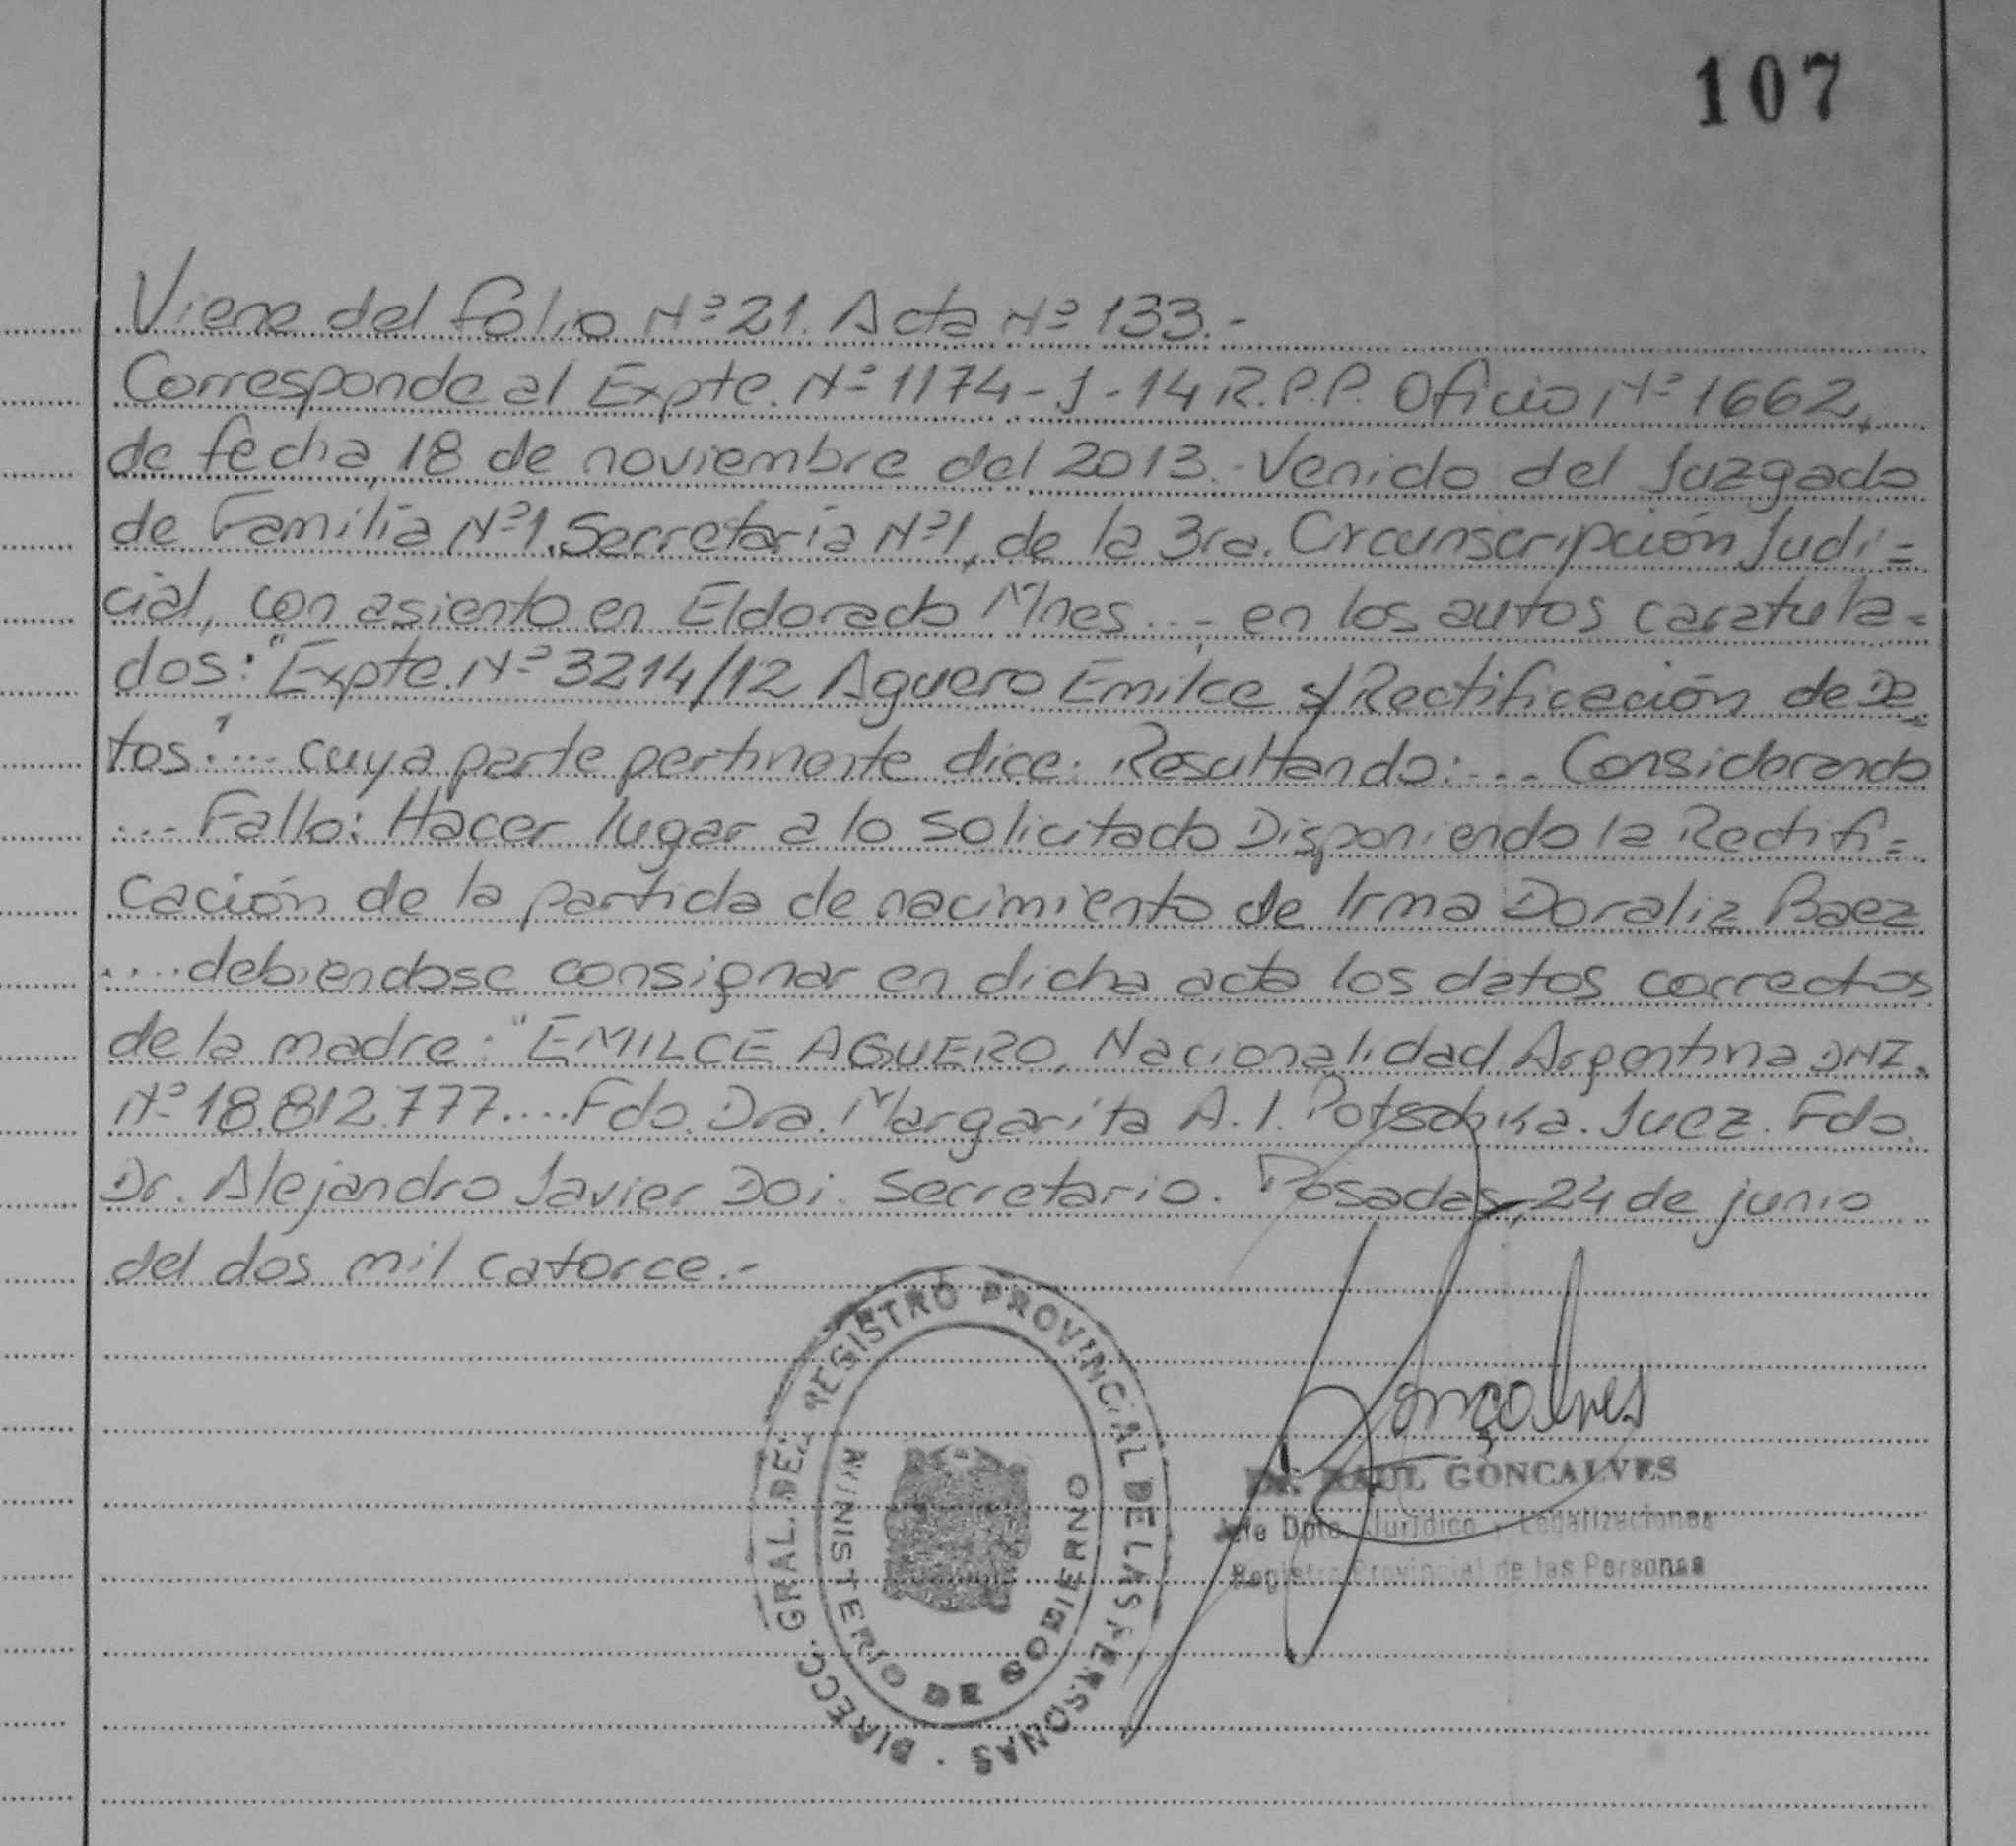 107
Viene del folio Nº 21. Acta Nº 133.-
Corresponde al Expte. Nº 1174-J-14 R.P.P. Oficio Nº 1662,
de fecha, 18 de noviembre del 2013.- Venido del Juzgado
de Familia Nº 1. Secretaria Nº 1, de la 3ra. Circunscripción Judi=
cial, con asiento en Eldorado Mnes...- en los autos caratula=
dos: "Expte. Nº 3214/12 Aguero Emilce s/ Rectificación de Da=
tos"... cuya parte pertinente dice: Resultando:... Considerando
... Fallo: Hacer lugar a lo solicitado Disponiendo la Rectifi=
cación de la partida de nacimiento de Irma Doraliz Baez
....debiendose consignar en dicha acta los datos correctos
de la madre: "EMILCE AGUERO, Nacionalidad Argentina DNI.
Nº 18.812.777.... Fdo. Dra. Margarita A. I. Potschka. Juez. Fdo.
Dr. Alejandro Javier Doi. Secretario. Posadas, 24 de junio
del dos mil catorce.-
DIRECC. GRAL. DEL REGISTRO PROVINCIAL DE LAS PERSONAS
MINISTERIO DE GOBIERNO
Gonçalves
Dr. RAUL GONÇALVES
Jefe Dpto. Jurídico y Legalizaciones
Registro Provincial de las Personas